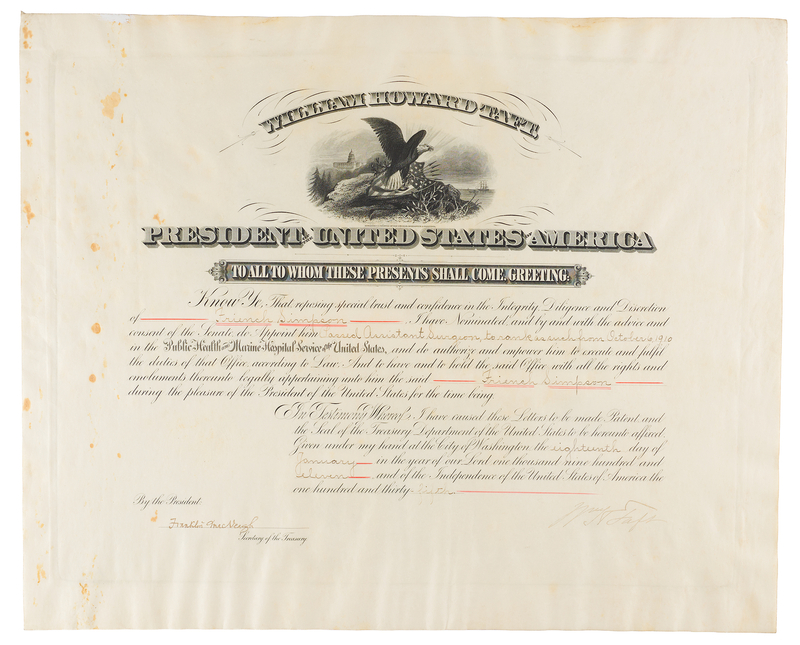 WILLIAM HOWARD TAFT,
PRESIDENT OF THE UNITED STATES OF AMERICA
TO ALL TO WHOM THESE PRESENTS SHALL COME, GREETING:
Know Ye, That reposing special trust and confidence in the Integrity, Diligence and Discretion
of French Simpson I have Nominated, and by and with the advice and
consent of the Senate do Appoint him Passed Assistant Surgeon, to rank as such from October 1910
in the Public-Health and Marine-Hospital Service of the United States, and do authorize and empower him to execute and fulfil
the duties of that Office according to Law. And to have and to hold the said Office with all the rights and
emoluments thereunto legally appertaining unto him the said French Simpson
during the pleasure of the President of the United States for the time being.
In Testimony Whereof, I have caused these Letters to be made Patent, and
the Seal of the Treasury Department of the United States to be hereunto affixed.
Given under my hand at the City of Washington, the eighteenth day of
January in the year of our Lord one thousand nine hundred and
eleven and of the Independence of the United States of America the
one hundred and thirty-fifth
By the President:
Wm H Taft
Franklin MacVeagh
Secretary of the Treasury